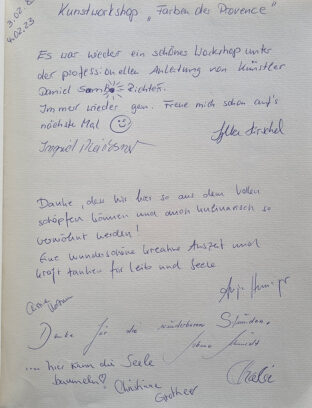 3.02.
4.02.23
Kunstworkshop „Farben der Provence"
Es war wieder ein schönes Workshop unter
der professionellen Anleitung von Künstler
Daniel Richter.
Immer wieder gern. Freue mich schon auf's
nächste Mal
Danke, das wir hier so aus dem Vollen
schöpfen können und auch kulinarisch so
verwöhnt werden!
Eine wunderschöne kreative Auszeit und
Kraft tanken für Leib und Seele
Danke für die wunderbaren Stunden.
.... hier kann die Seele
baumeln! Christiane